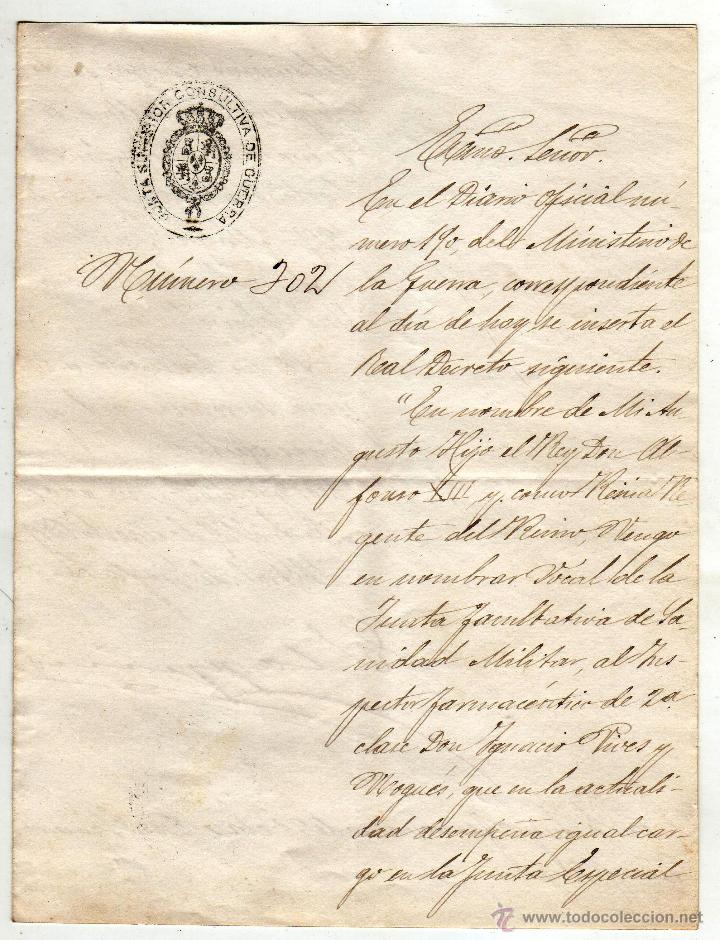 JUNTA SUPERIOR CONSULTIVA DE GUERRA
Número 202
Excmo. Señor.
En el Diario oficial nú-
mero 190, del Ministerio de
la Guerra, correspondiente
al día de hoy se inserta el
Real Decreto siguiente.
"En nombre de Mi Au
gusto Hijo el Rey Don Al-
fonso XIII, y como Reina Re
gente del Reino, Vengo
en nombrar Vocal de la
Junta facultativa de Sa-
nidad Militar, al Ins-
pector farmacéutico de 2ª
clase Don Ignacio Vives y
Nogués, que en la actuali-
dad desempeña igual car-
go en la Junta Especial
www.todocoleccion.net